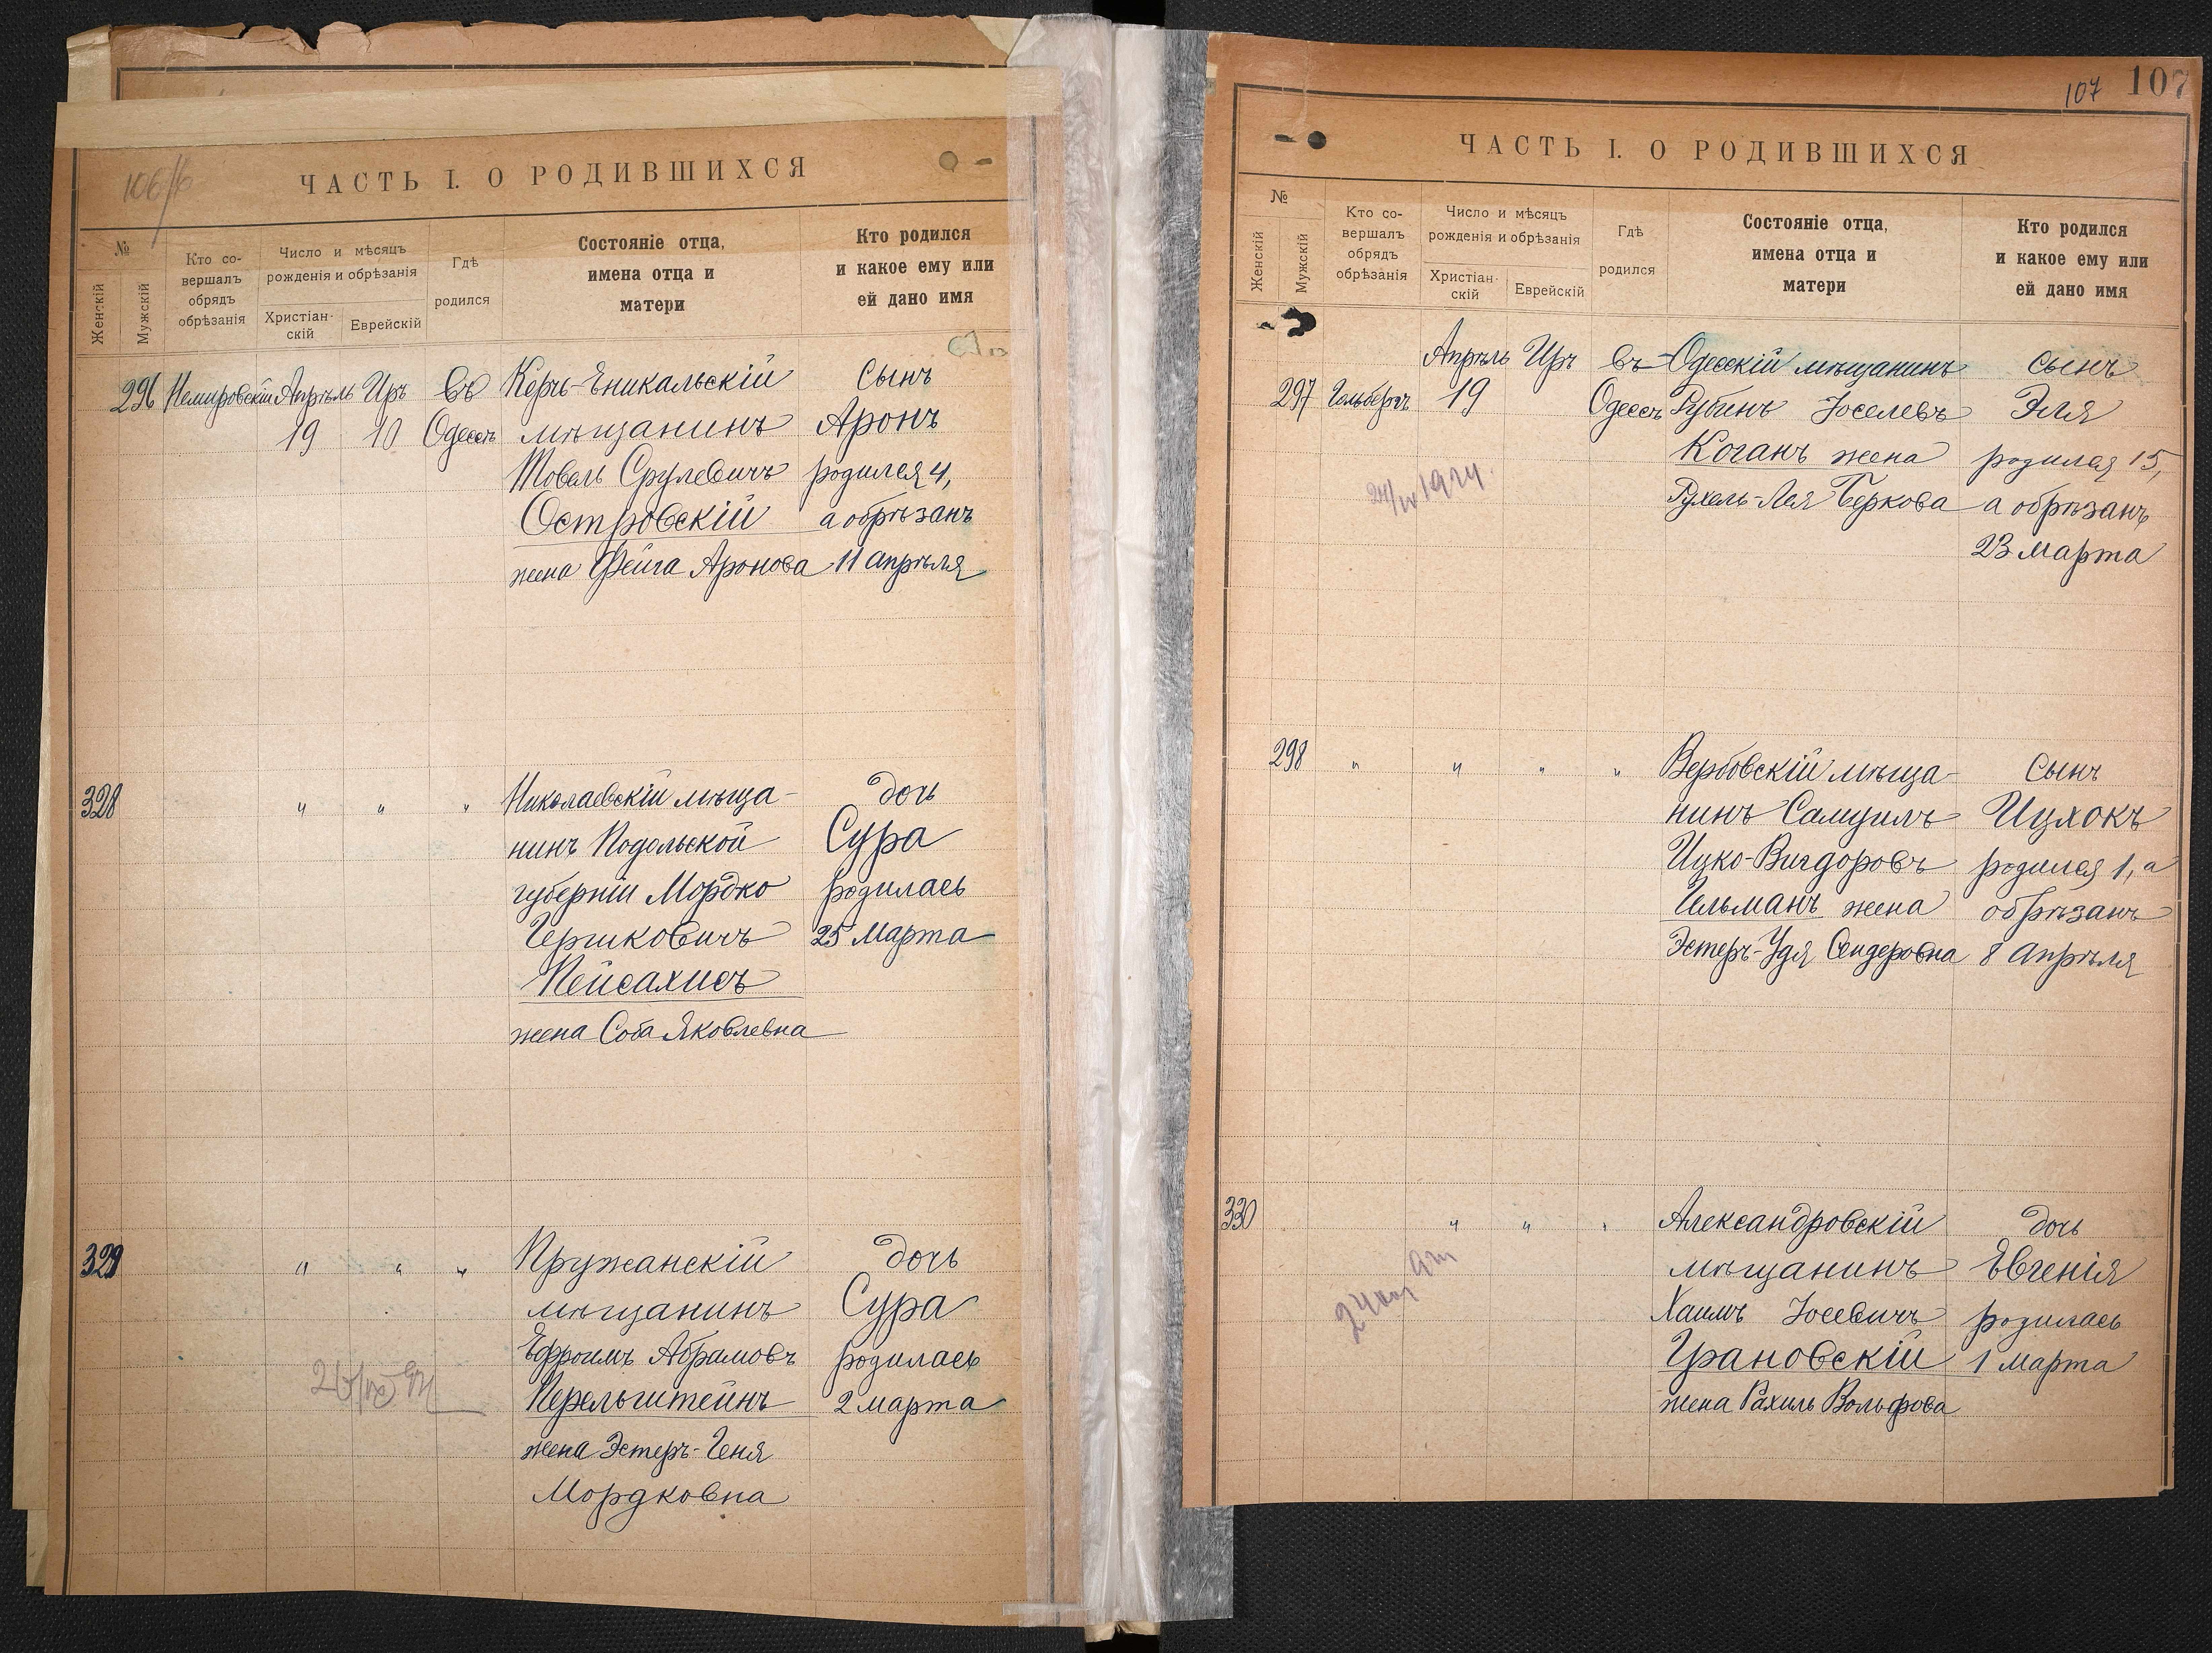 106/б
ЧАСТЬ I. О РОДИВШИХСЯ
№
Женскій
Мужскій
Кто со-
вершалъ
обрядъ
обрѣзанія
Число и мѣсяцъ
рожденія и обрѣзанія
Христіан-
скій
Еврейскій
Гдѣ
родился
Состояніе отца,
имена отца и
матери
Кто родился
и какое ему или
ей дано имя
296 Немировскій Апрѣль Иръ въ Керчь-Еникальскій сынъ
19 10 Одессѣ мѣщанинъ Аронъ
Товель Срулевичъ родился 4,
Островскій а обрѣзанъ
жена Фейга Аронова 11 апрѣля
328 " " " Николаевскій мѣща- дочь
нинъ Подольской Сура
губерніи Мордко родилась
Гершковичъ 25 марта
Пейсахисъ
жена Соба Яковлевна
329 " " " Пружанскій дочь
мѣщанинъ Сура
Ефроимъ Абрамовъ родилась
Перельштейнъ 2 марта
жена Эстеръ-Геня
Мордковна
107 107
ЧАСТЬ I. О РОДИВШИХСЯ
№
Женскій
Мужскій
Кто со-
вершалъ
обрядъ
обрѣзанія
Число и мѣсяцъ
рожденія и обрѣзанія
Христіан-
скій
Еврейскій
Гдѣ
родился
Состояніе отца,
имена отца и
матери
Кто родился
и какое ему или
ей дано имя
Апрѣль Иръ въ Одесскій мѣщанинъ сынъ
297 Гольбергъ 19 Одессѣ Рубинъ Іоселевъ Эля
Коганъ жена родился 15,
24/IV 1924.
Рухель-Лея Беркова а обрѣзанъ
23 марта
298 " " " " Вербовскій мѣща- сынъ
нинъ Самуилъ Ицхокъ
Ицко-Вигдоровъ родился 1, а
Гельманъ жена обрѣзанъ
Эстеръ-Удя Сендеровна 8 апрѣля
330 " " " Александровскій дочь
мѣщанинъ Евгенія
Хаимъ Іосевичъ родилась
Грановскій 1 марта
жена Рахиль Вольфова